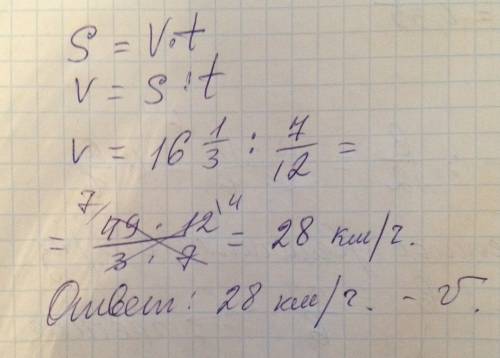 S = V·t
V = S : t
V = 16 1/3 : 7/12 =
= 7/ 49 · 12 \4 / 3 · 7 = 28 км/ч.
Ответ: 28 км/ч. - V.